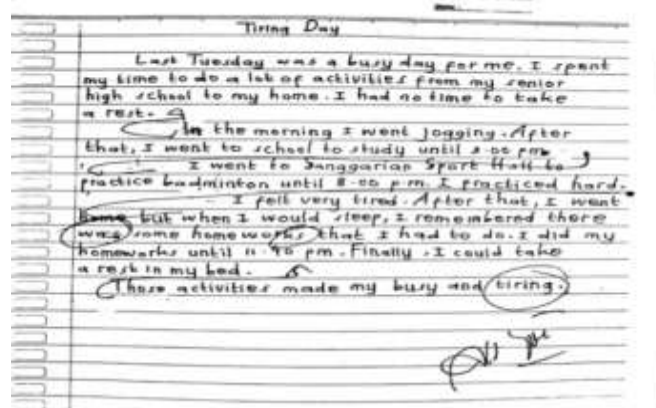 Tiring Day
Last Tuesday was a busy day for me. I spent
my time to do a lot of activities from my senior
high school to my home. I had no time to take
a rest.
In the morning I went jogging. After
that, I went to school to study until
I went to Sanggarian Sport Hall to
practice badminton until 8.00 p.m. I practiced hard.
I felt very tired. After that, I went
home but when I would sleep, I remembered there
was some homeworks that I had to do. I did my
homeworks until pm. Finally, I could take
a rest in my bed.
Those activities made my busy and tiring.